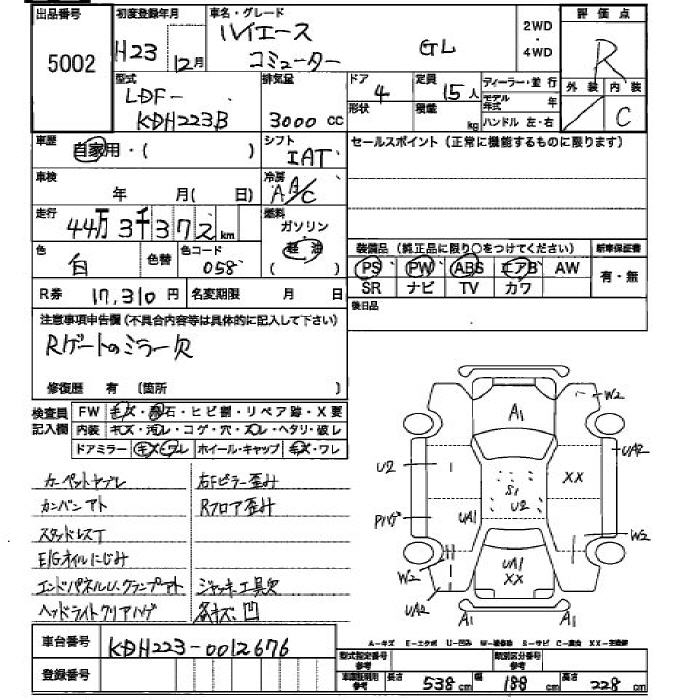 出品番号 初度登録年月 車名・グレード 2WD 評価点
5002 H23 12月 ハイエース コミューター GL ・ 4WD R
型式 排気量 ドア 4 定員 15人 ディーラー・並行 外装 内装
LDF-KDH223B 3000cc 形状 積載 kg モデル年式 年 / C
ハンドル 左・右
車歴 自家用・( ) シフト IAT セールスポイント (正常に機能するものに限ります)
車検 年 月(日) 冷房 AA/C
走行 44万3千372km 燃料 ガソリン
軽油
( )
色 白 色替 色コード 058
装備品 (純正品に限り○をつけてください) 新車保証書
PS PW ABS エアB AW 有・無
SR ナビ TV カワ
R券 17,310円 名変期限 月 日
後日品
注意事項申告欄 (不具合内容等は具体的に記入して下さい)
Rゲートのミラー欠
修復歴 有 (箇所 )
検査員 FW キズ・飛石・ヒビ割・リペア跡・X要
記入欄 内装 キズ・汚レ・コゲ・穴・スレ・ヘタリ・破レ
ドアミラー キズ・ワレ ホイール・キャップ キズ・ワレ
カーペットヤブレ 右Fピラー歪み
カンバンアト Rフロア歪み
スタッドレスT
E/Gオイルにじみ
エンドパネルU.クランプアト ジャッキ工具欠
ヘッドライトクリアハゲ 各キズ凹
A1
W2
UA2
U2
XX
S1
U2
Pハゲ
UA1
W2
UA1
XX
W2
UA2
A1 A1
車台番号 KDH223-0012676
A-キズ E-エクボ U-凹み W-補修跡 S-サビ C-腐食 XX-交換跡
登録番号
型式指定番号 参考 類別区分番号 参考
車庫証明用 参考 長さ 538cm 幅 188cm 高さ 228cm